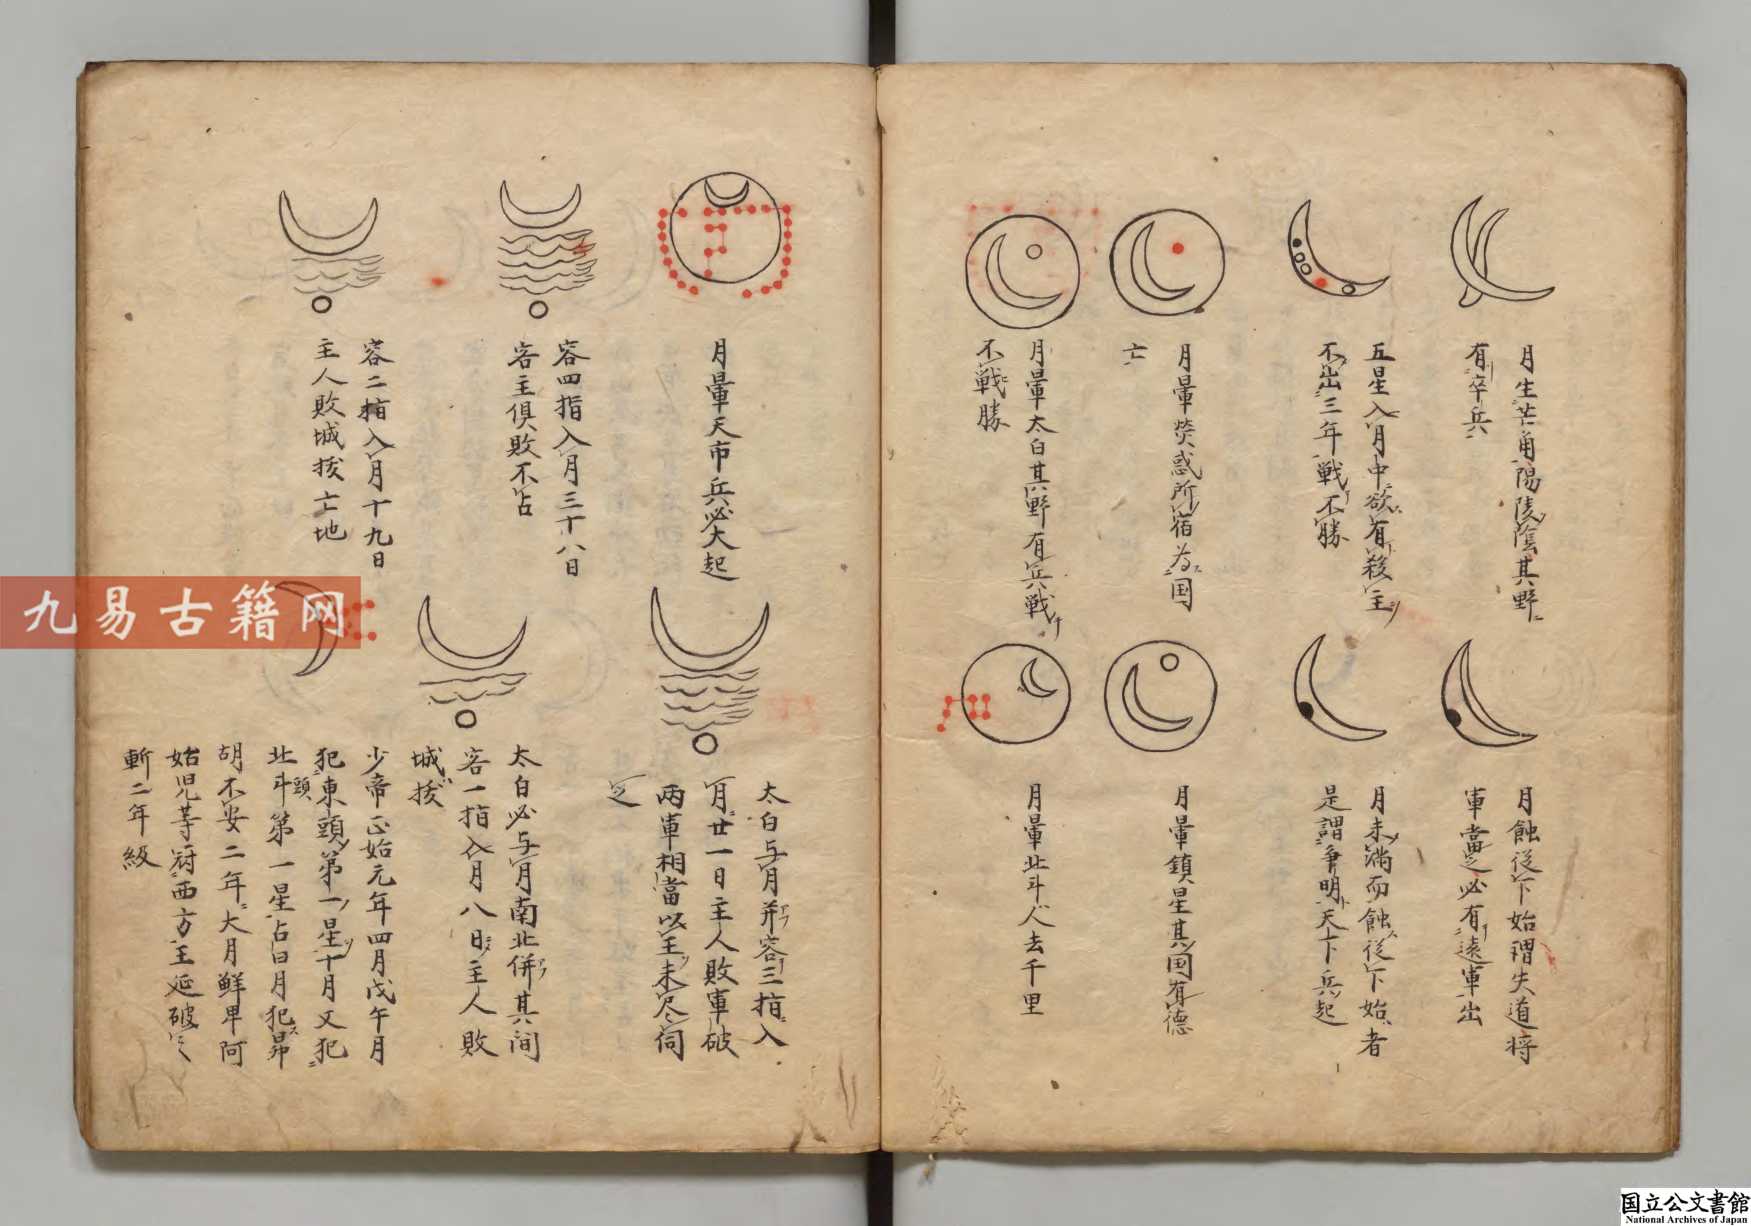 月生芒角陽陵陰其野
有卒兵
五星入月中欲有殺主
不出三年戦不勝
月暈熒惑所宿為国
亡
月暈太白其野有兵戦
不戦勝
月蝕従下始謂失道将
軍當之必有遠軍出
月未満而蝕従下始者
是謂争明天下兵起
月暈鎮星其国有德
月暈北斗人去千里
月暈天市兵必大起
容四指入月三十八日
客主俱敗不占
容二指入月十九日
主人敗城拔亡地
太白与月并容三指入
月廿一日主人敗軍破
両軍相當以主未尽伺
之
太白必与月南北併其间
容一指入月八日主人敗
城拔
少帝正始元年四月戊午月
犯東頭第一星十月又犯
頭
北斗第一星占曰月犯昴
胡不安二年大月鮮卑阿
始児等冦西方王延破之
斬二年級
九易古籍网
国立公文書館
National Archives of Japan